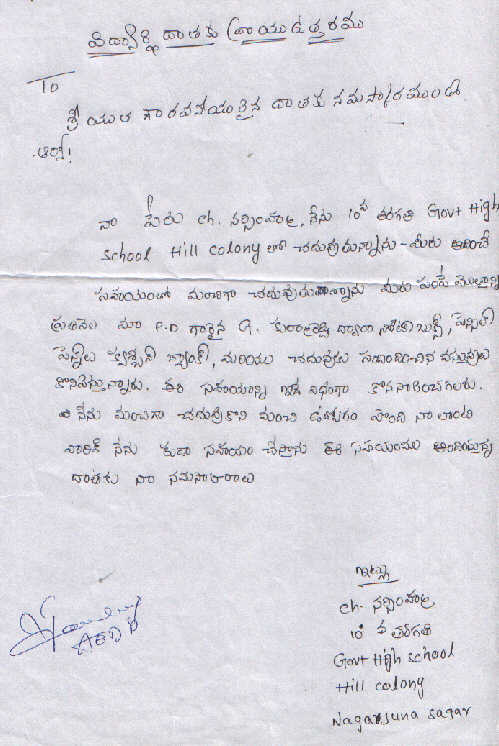 విద్యార్థి దాతకు వ్రాయు ఉత్తరము
To
శ్రీ యుత గౌరవనీయులైన దాతకు నమస్కారముండి
ఆర్యా!
నా పేరు ch. నర్సింహ, నేను 10వ తరగతి Govt High
school Hill colony లో చదువుచున్నాను - మీరు అందించే
సహాయంతో మంచిగా చదువుచున్నాను మీరు పంపే మొత్తాన్ని
ప్రతినెల మా P.D గారైన G. ద్వారా నోట్ బుక్స్, పెన్సిల్
పెన్నులు క్వశ్చన్ బ్యాంక్, మరియు చదువుకు సంబందించిన వస్తువులు
కొనిపిస్తున్నారు. ఈ సహాయాన్ని ఇదే విధంగా కొనసాగించగలరు.
నేను మంచిగా చదువుకొని మంచి ఉద్యోగం పొంది నా లాంటి
వారికి నేను కూడా సహాయం చేస్తాను ఈ సహాయము అందించుచున్న
దాతకు నా నమస్కారాలు
ఇట్లు
ch. నర్సింహ
10 వ తరగతి
Govt High school
Hill colony
Nagarjuna sagar